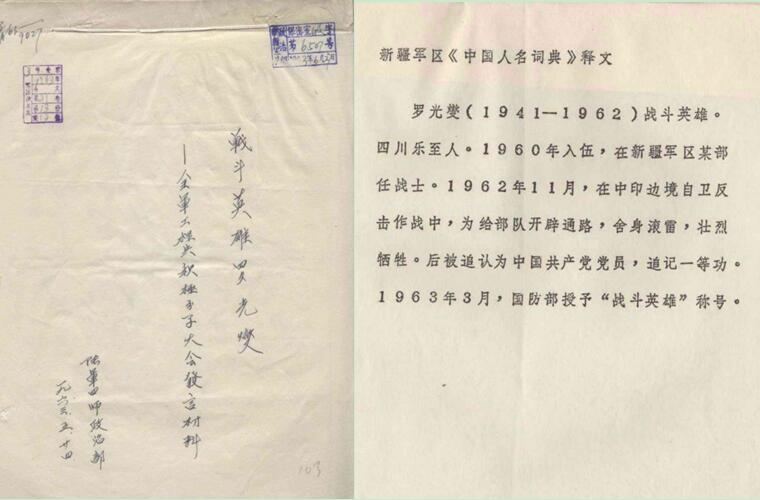 9027
第6507号
战斗英雄罗光燮
—全军工模共积极分子大会發言材料
陆军四师政治部
一九六三.五.廿四
103
新疆军区《中国人名词典》释文
罗光燮(1941—1962)战斗英雄。
四川乐至人。1960年入伍，在新疆军区某部
任战士。1962年11月，在中印边境自卫反
击作战中，为给部队开辟通路，舍身滚雷，壮烈
牺牲。后被追认为中国共产党党员，追记一等功。
1963年3月，国防部授予“战斗英雄”称号。